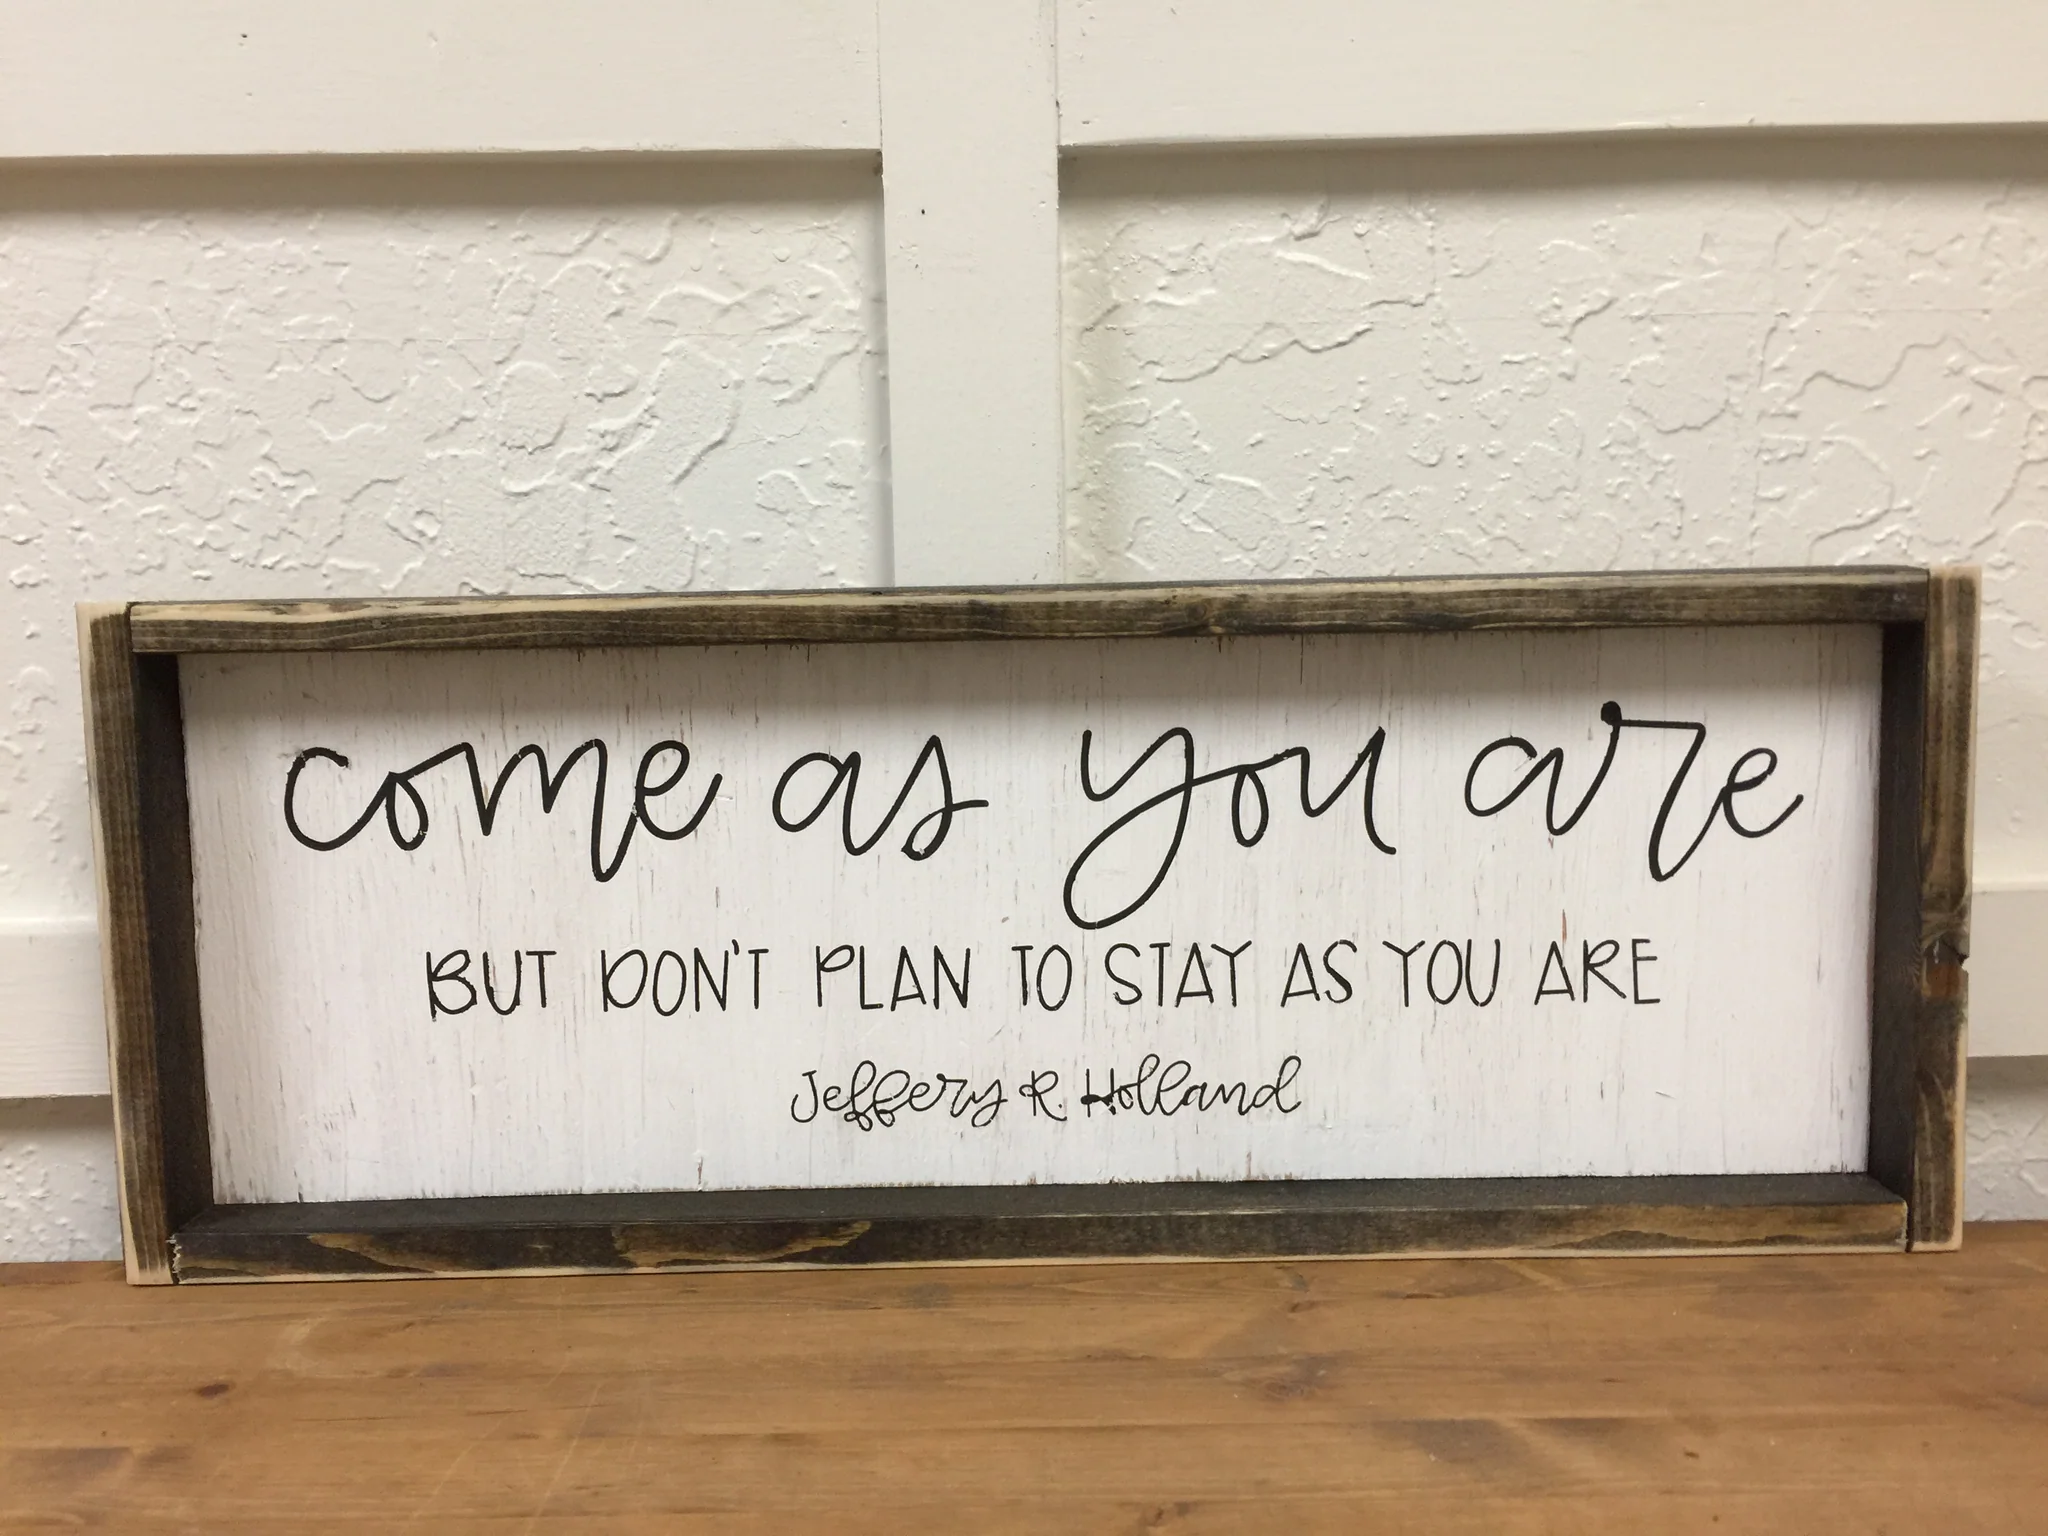 come as you are
BUT DON'T PLAN TO STAY AS YOU ARE
Jeffery R. Holland